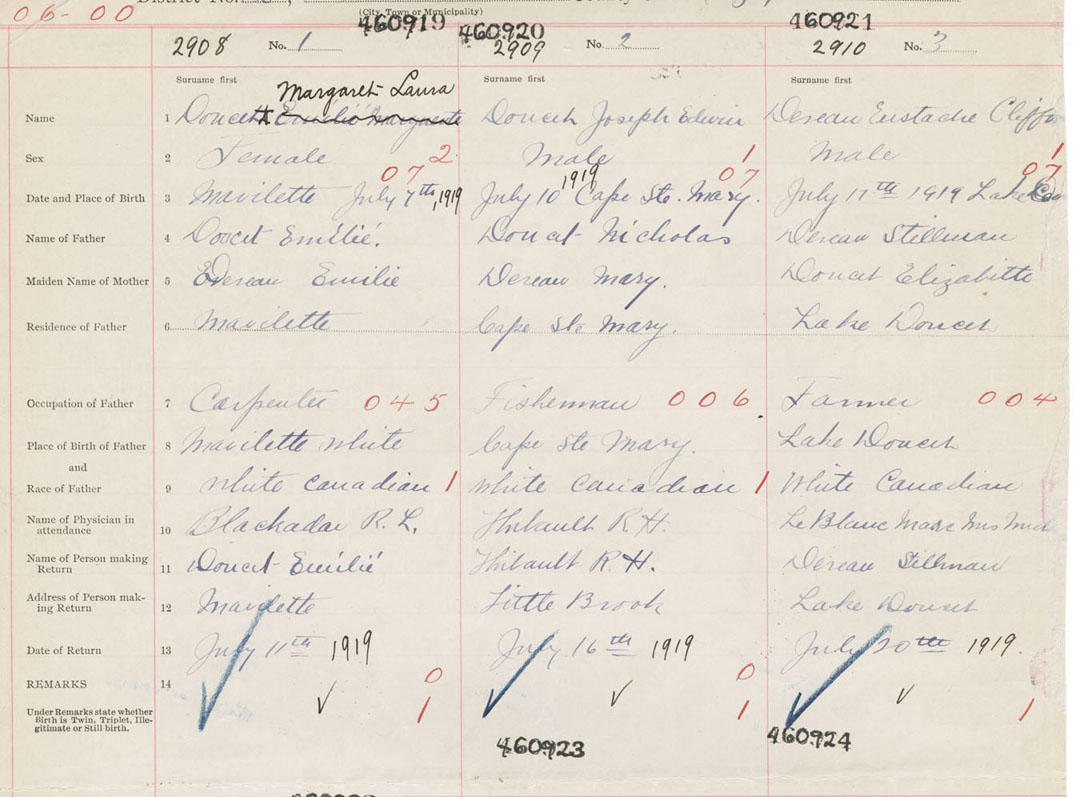 06-00 District No.
(City, Town or Municipality)
460919 460920 460921
2908 No. 1 2909 No. 2 2910 No. 3
Surname first Surname first Surname first
Margaret Laura
Name 1 Doucet Emilié Marguerite Doucet Joseph Edwin Dereau Eustache
Sex 2 Female 2 Male 1 Male 1
07 1919 07 07
Date and Place of Birth 3 Mavilette July 7th, 1919 July 10 Cape Ste. Mary. July 11th 1919 Lake
Name of Father 4 Doucet Emilié. Doucet Nicholas Dereau Stillman
Maiden Name of Mother 5 Dereau Emilie Dereau Mary. Doucet Elizabitte
Residence of Father 6 Mavilette Cape Ste Mary. Lake Doucet
Occupation of Father 7 Carpenter 045 Fisherman 006. Farmer 004
Place of Birth of Father 8 Mavilette White Cape Ste Mary. Lake Doucet
and
Race of Father 9 White Canadian 1 White Canadian 1 White Canadian
Name of Physician in
attendance 10 Blackadar R. L. Thibault R. H. LeBlanc
Name of Person making
Return 11 Doucet Emilié Thibault R. H. Dereau Stillman
Address of Person mak-
ing Return 12 Mavilette Little Brook Lake Doucet
Date of Return 13 July 11th 1919 July 16th 1919 July 20th 1919.
REMARKS 14 0 0
Under Remarks state whether
Birth is Twin, Triplet, Ille-
gitimate or Still birth. 1 1 1
460923 460924